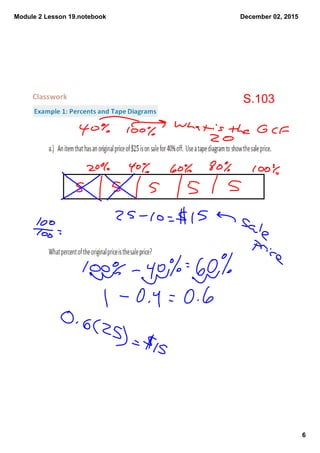 Module 2 Lesson 19.notebook December 02, 2015
Classwork S.103
Example 1: Percents and Tape Diagrams
40% 100% What is the GCF
20
a.) An item that has an original price of $25 is on sale for 40% off. Use a tape diagram to show the sale price.
20% 40% 60% 80% 100%
5 5 5 5 5
25-10=$15 ← Sale Price
100/100 =
What percent of the original price is the sale price?
100% - 40% = 60%
1 - 0.4 = 0.6
0.6(25) = $15
6